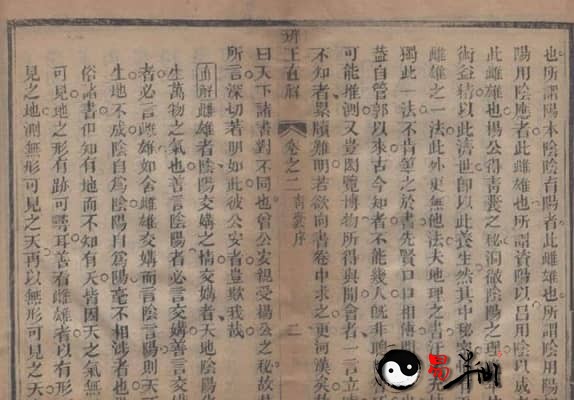 也所謂陽本陰陰育陽者此雌雄也所謂陰用陽
陽用陰應者此雌雄也所謂資陽以昌用陰以成
此雌雄也楊公得青囊之秘洞徹陰陽之理
術益精以此濟世卽以此養生然其中秘密
雌雄之一法此外更無他法夫地理之書汗牛充
獨此一法不肯筆之於書先賢口口相傳間
蓋自管郭以來古今知者不能幾人旣非聰
可能推測又豈閎覽博物所得與聞會者一言立
不知者累牘難明若欲向書卷中求之更河漢矣故
辨正直解 卷之二 青囊序 二
曰天下諸書對不同也曾公安親受楊公之秘故
所言深切若明如此彼公安者豈欺我哉
直解雌雄者陰陽交媾之情交媾者天地陰陽
生萬物之氣也善言陰陽者必言交媾善言交
者必言雌雄如舍雌雄交媾而言陰陽則天
生地不成陰自爲陰陽自爲陽毫不相涉者也
俗諸書但知有地而不知有天皆因天之氣無
可見地之形有跡可尋耳善看雌雄者以有形
見之地測無形可見之天再以無形可見之天
易